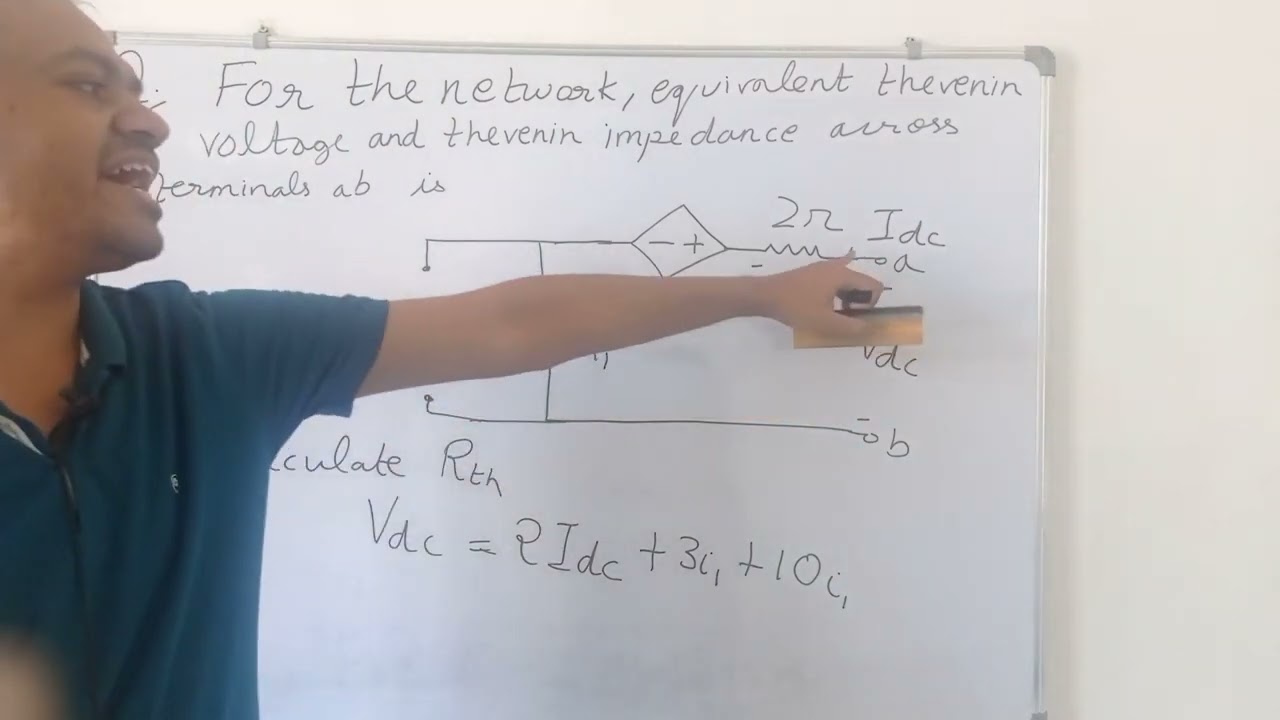 For the network, equivalent thevenin
voltage and thevenin impedance across
terminals ab is
- +
2Ω
Idc
a
-
Vdc
i₁
-
b
Rth
Vdc = 2Idc + 3i₁ + 10i₁